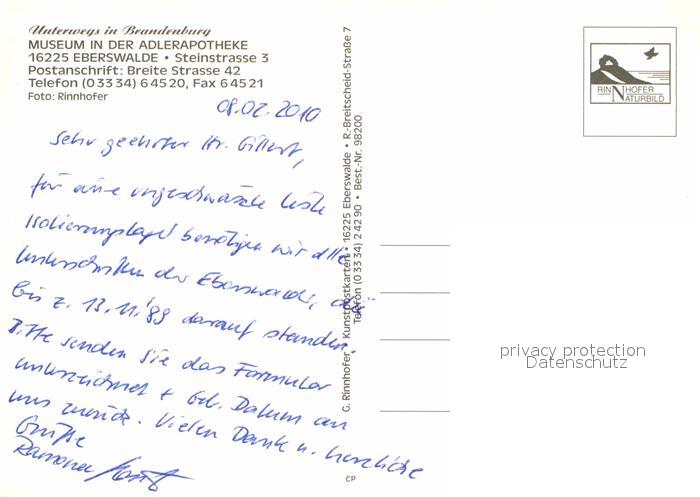 Unterwegs in Brandenburg
MUSEUM IN DER ADLERAPOTHEKE
16225 EBERSWALDE • Steinstrasse 3
Postanschrift: Breite Strasse 42
Telefon (0 33 34) 6 45 20, Fax 6 45 21
Foto: Rinnhofer
08.02.2010
Sehr geehrter Hr. Gillert,
für eine ungeschwärzte Liste
Isolierungslager benötigen wir alle
Unterschriften der Eberswalder, die
bis z. 13.11.'89 darauf standen.
Bitte senden Sie das Formular
unterzeichnet + Geb. Datum an
uns zurück. Vielen Dank u. herzliche
Grüße
Ramona
G. Rinnhofer • Kunstpostkarten • 16225 Eberswalde • R.-Breitscheid-Straße 7
Telefon (0 33 34) 2 42 90 • Best.-Nr. 98200
CP
RINNHOFER
NATURBILD
privacy protection
Datenschutz